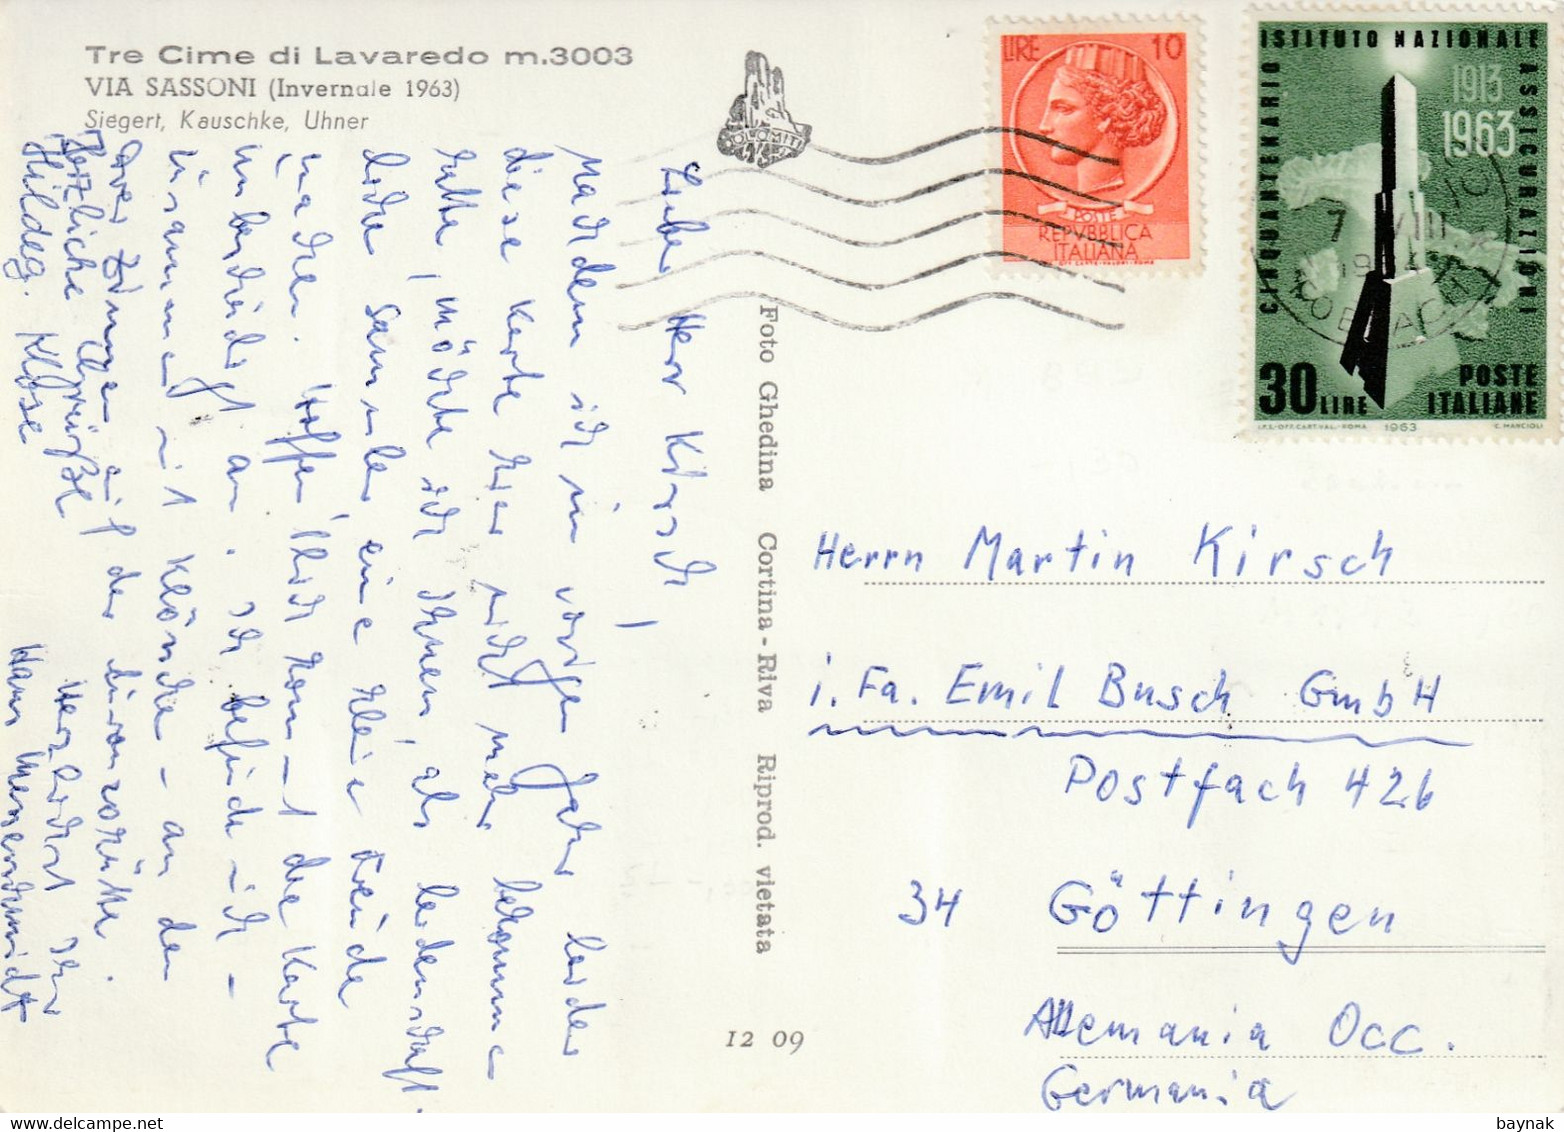 Tre Cime di Lavaredo m.3003
VIA SASSONI (Invernale 1963)
Siegert, Kauschke, Uhner
DOLOMITI
LIRE 10
POSTE
REPVBBLICA
ITALIANA
ISTITUTO NAZIONALE
ASSICURAZIONI
CINQUANTENARIO
1913
1963
30 LIRE
POSTE
ITALIANE
I.P.S.-OFF.CART.VAL.-ROMA 1963 C. MANCIOLI
Foto Ghedina Cortina - Riva Riprod. vietata
12 09
Lieber Herr Kirsch!
Nachdem ich im vorigen Jahr leider
diese Karte hier nicht mehr bekommen
hatte, möchte ich Ihnen, als leidenschaftl.
Sammler eine kleine Freude
machen. Hoffentlich kommt die Karte
unbeschädigt an. Ich befinde mich
zusammen mit - an den
auf der Dürrensteinhütte.
Herzlichst Ihr
Hans
Herzliche Grüße
Hildeg. Klose
Herrn Martin Kirsch
i. Fa. Emil Busch GmbH
Postfach 426
34 Göttingen
Allemania Occ.
Germania
baynak